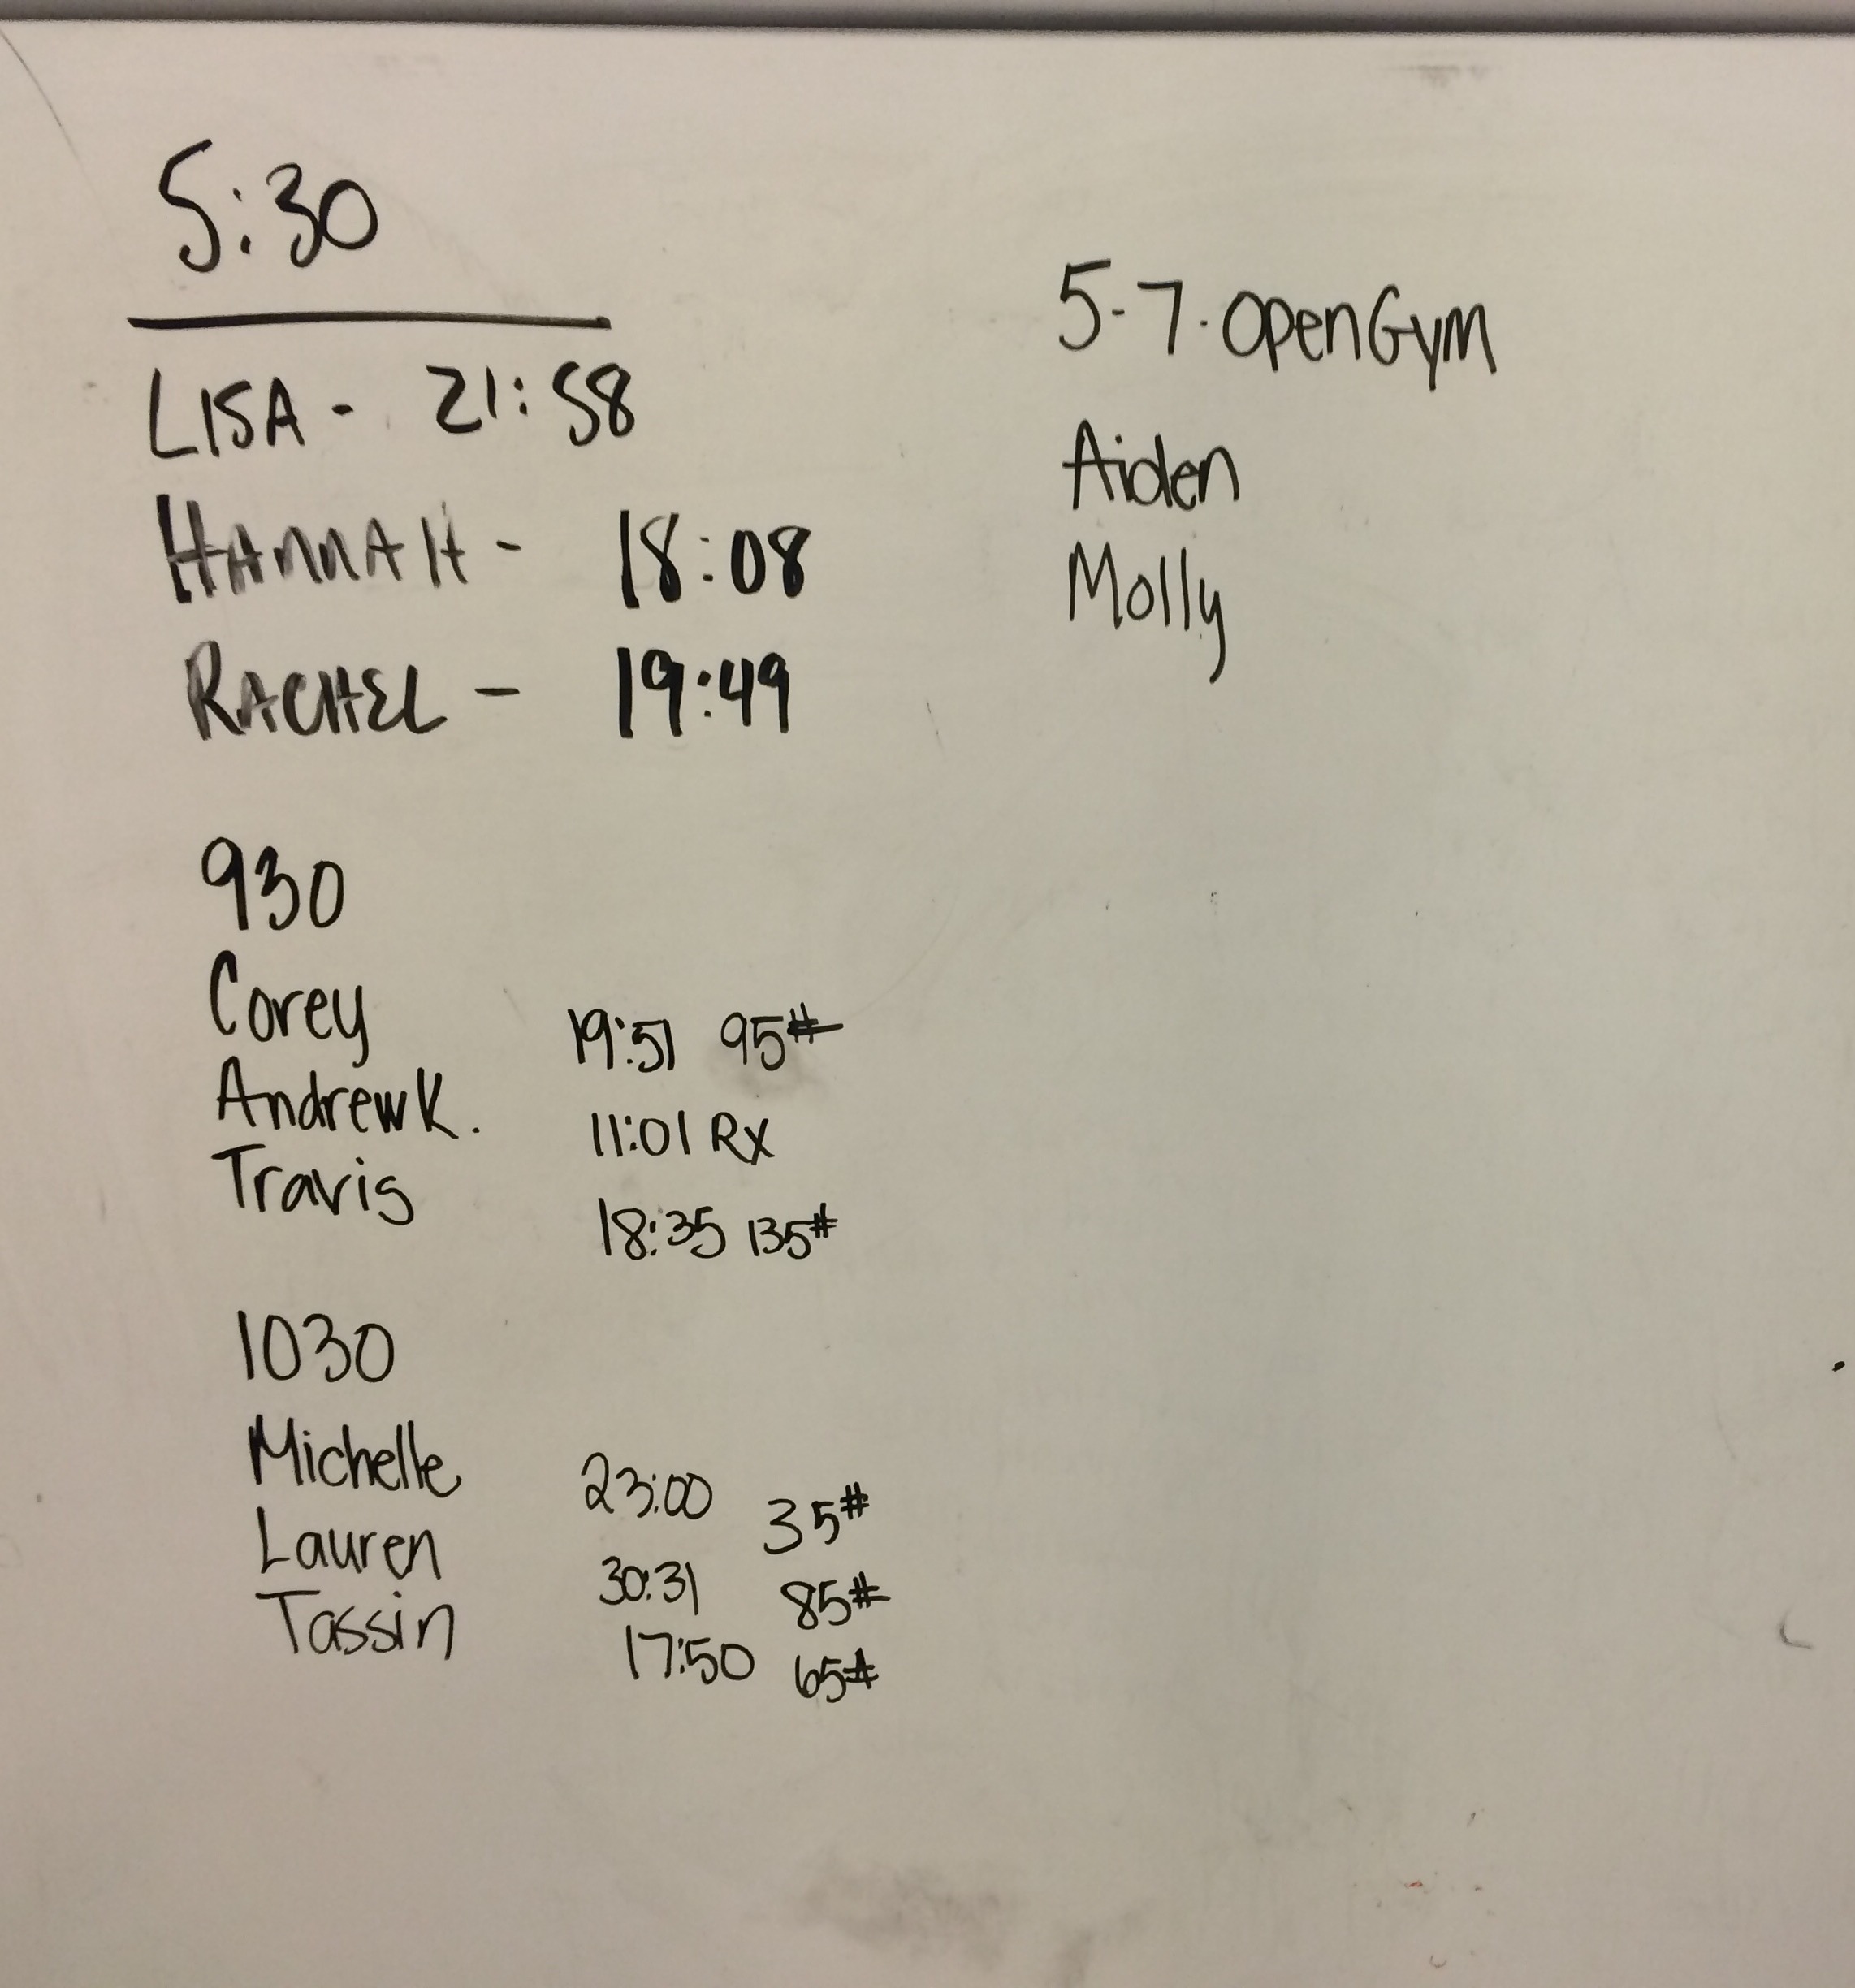 5:30
LISA - 21:58
HANNAH - 18:08
RACHEL - 19:49
930
Corey 19:51 95#
Andrew K. 11:01 Rx
Travis 18:35 135#
1030
Michelle 23:00 35#
Lauren 30:31 85#
Tassin 17:50 65#
5-7. Open Gym
Aiden
Molly